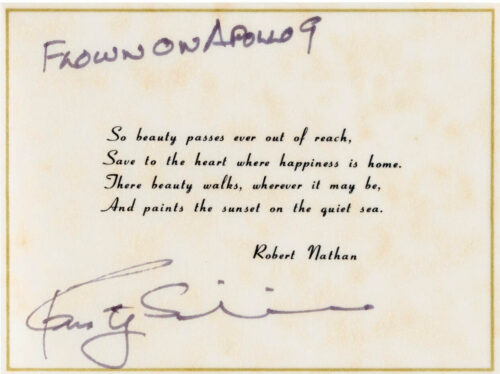 FLOWN ON APOLLO 9
So beauty passes ever out of reach,
Save to the heart where happiness is home.
There beauty walks, wherever it may be,
And paints the sunset on the quiet sea.
Robert Nathan
Rusty